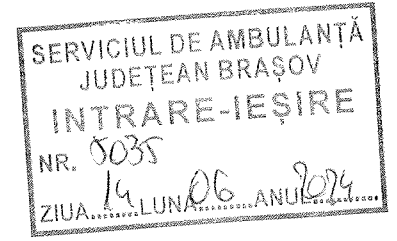 SERVICIUL DE AMBULANȚĂ
JUDEȚEAN BRAȘOV
INTRARE-IEȘIRE
NR. 5035
ZIUA 14 LUNA 06 ANUL 2024